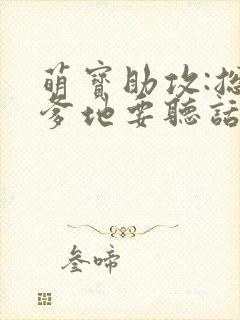 萌寶助攻:總
爹地要聽話
叁啼